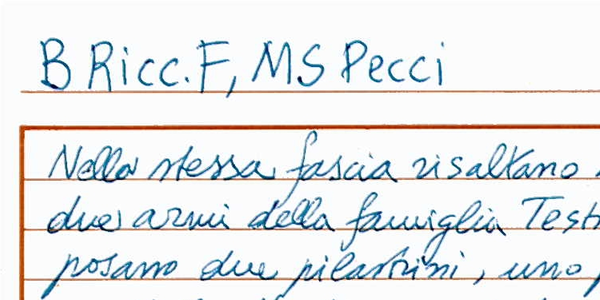 B Ricc. F, MS Pecci
Nella stessa fascia risaltano
due armi della famiglia Testi
posano due pilastrini, uno